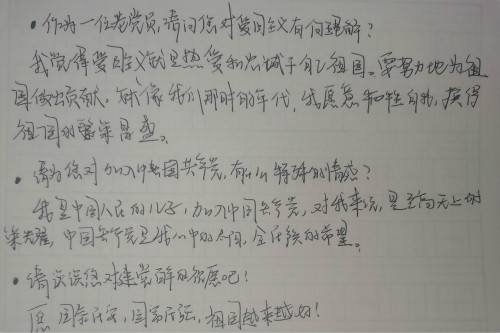 • 作为一位老党员,请问您对爱国主义有何理解?
我觉得爱国主义就是热爱和忠诚于自己祖国。要努力地为祖
国做出贡献,就像我们那时的年代,我愿意牺牲自我,换得
祖国的繁荣昌盛。
• 请问您对加入中国共产党,有什么特殊的情感?
我是中国人民的儿子,加入中国共产党,对我来说,是至高无上的
荣耀,中国共产党是我心中的太阳,全民族的希望。
• 请谈谈您对建党百年的祝愿吧!
愿 国泰民安,国富民强,祖国越来越好!